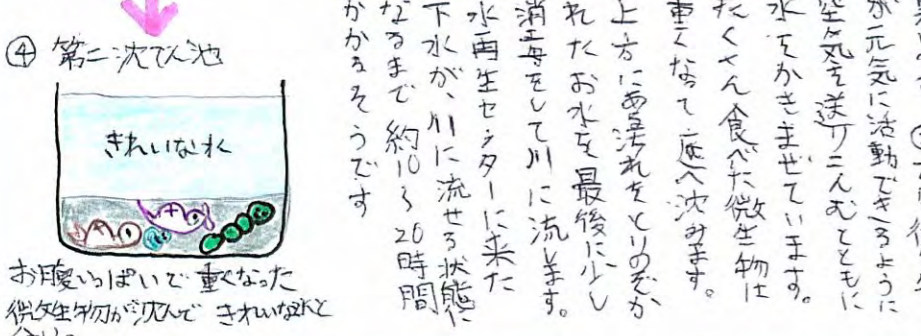 ④ 第二沈でん池
きれいな水
お腹いっぱいで重くなった
微生物が沈んで きれいな水と
が元気に活動できるように
空気を送りこんむとともに
水をかきませています。
たくさん食べた微生物は
重くなって底へ沈みます。
上方にある汚れをとりのぞか
れたお水を最後に少し
消毒をして川に流します。
水再生センターに来た
下水が、川に流せる状態に
なるまで約10〜20時間
かかるそうです